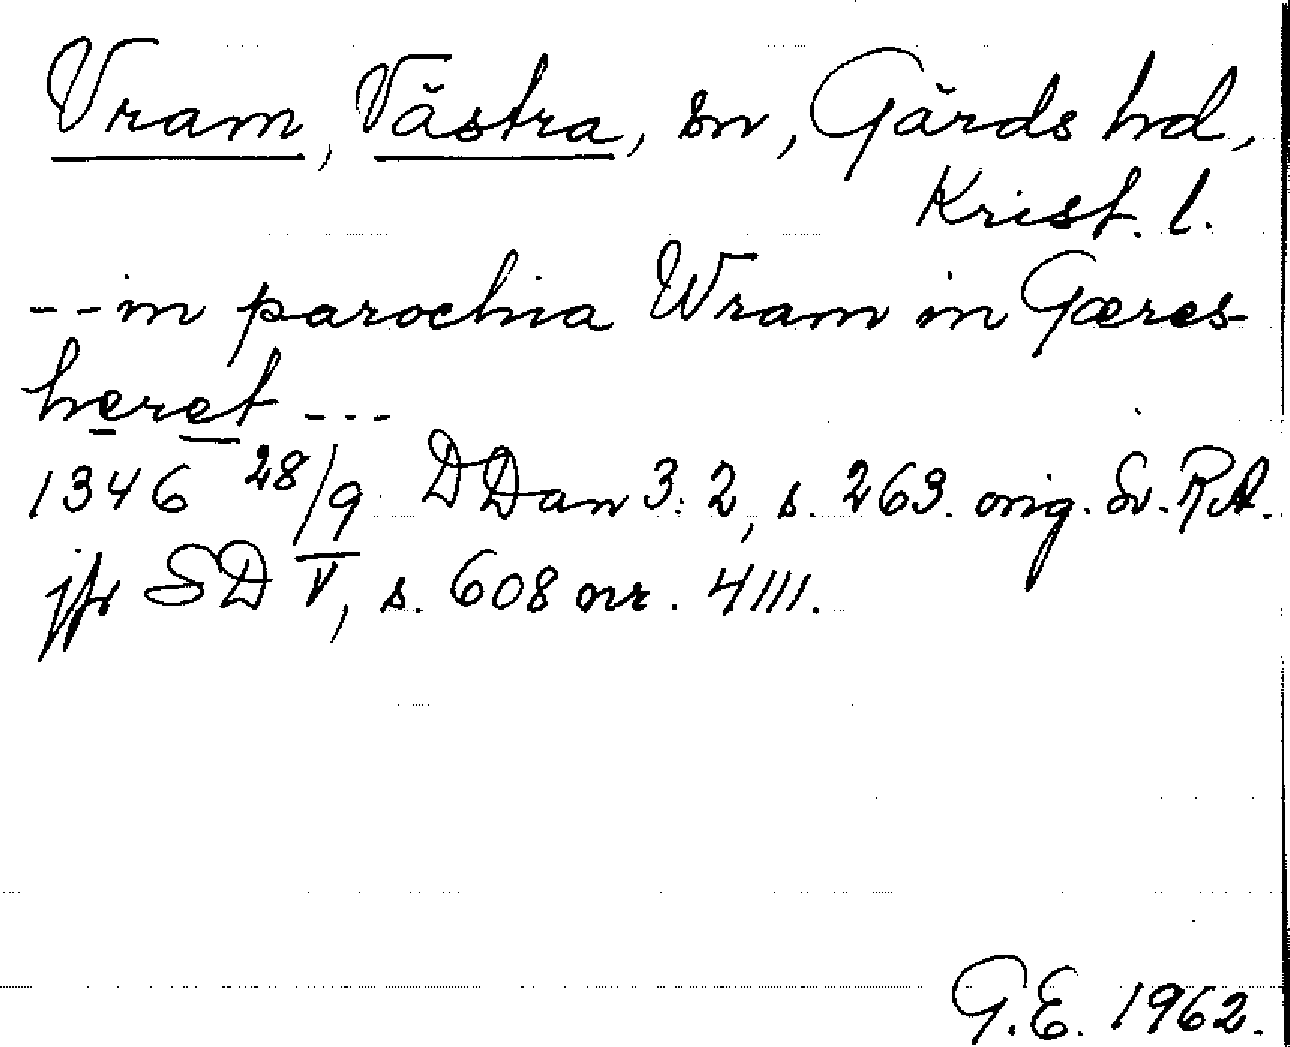 Vram, Västra, sn, Gärds hd,
Krist. l.
-- in parochia Wram in Gæres
heret ---
1346 28/9 DDan 3:2, s. 263. orig. Sv. RA.
jfr SD V, s. 608 nr. 4111.
G.E. 1962.